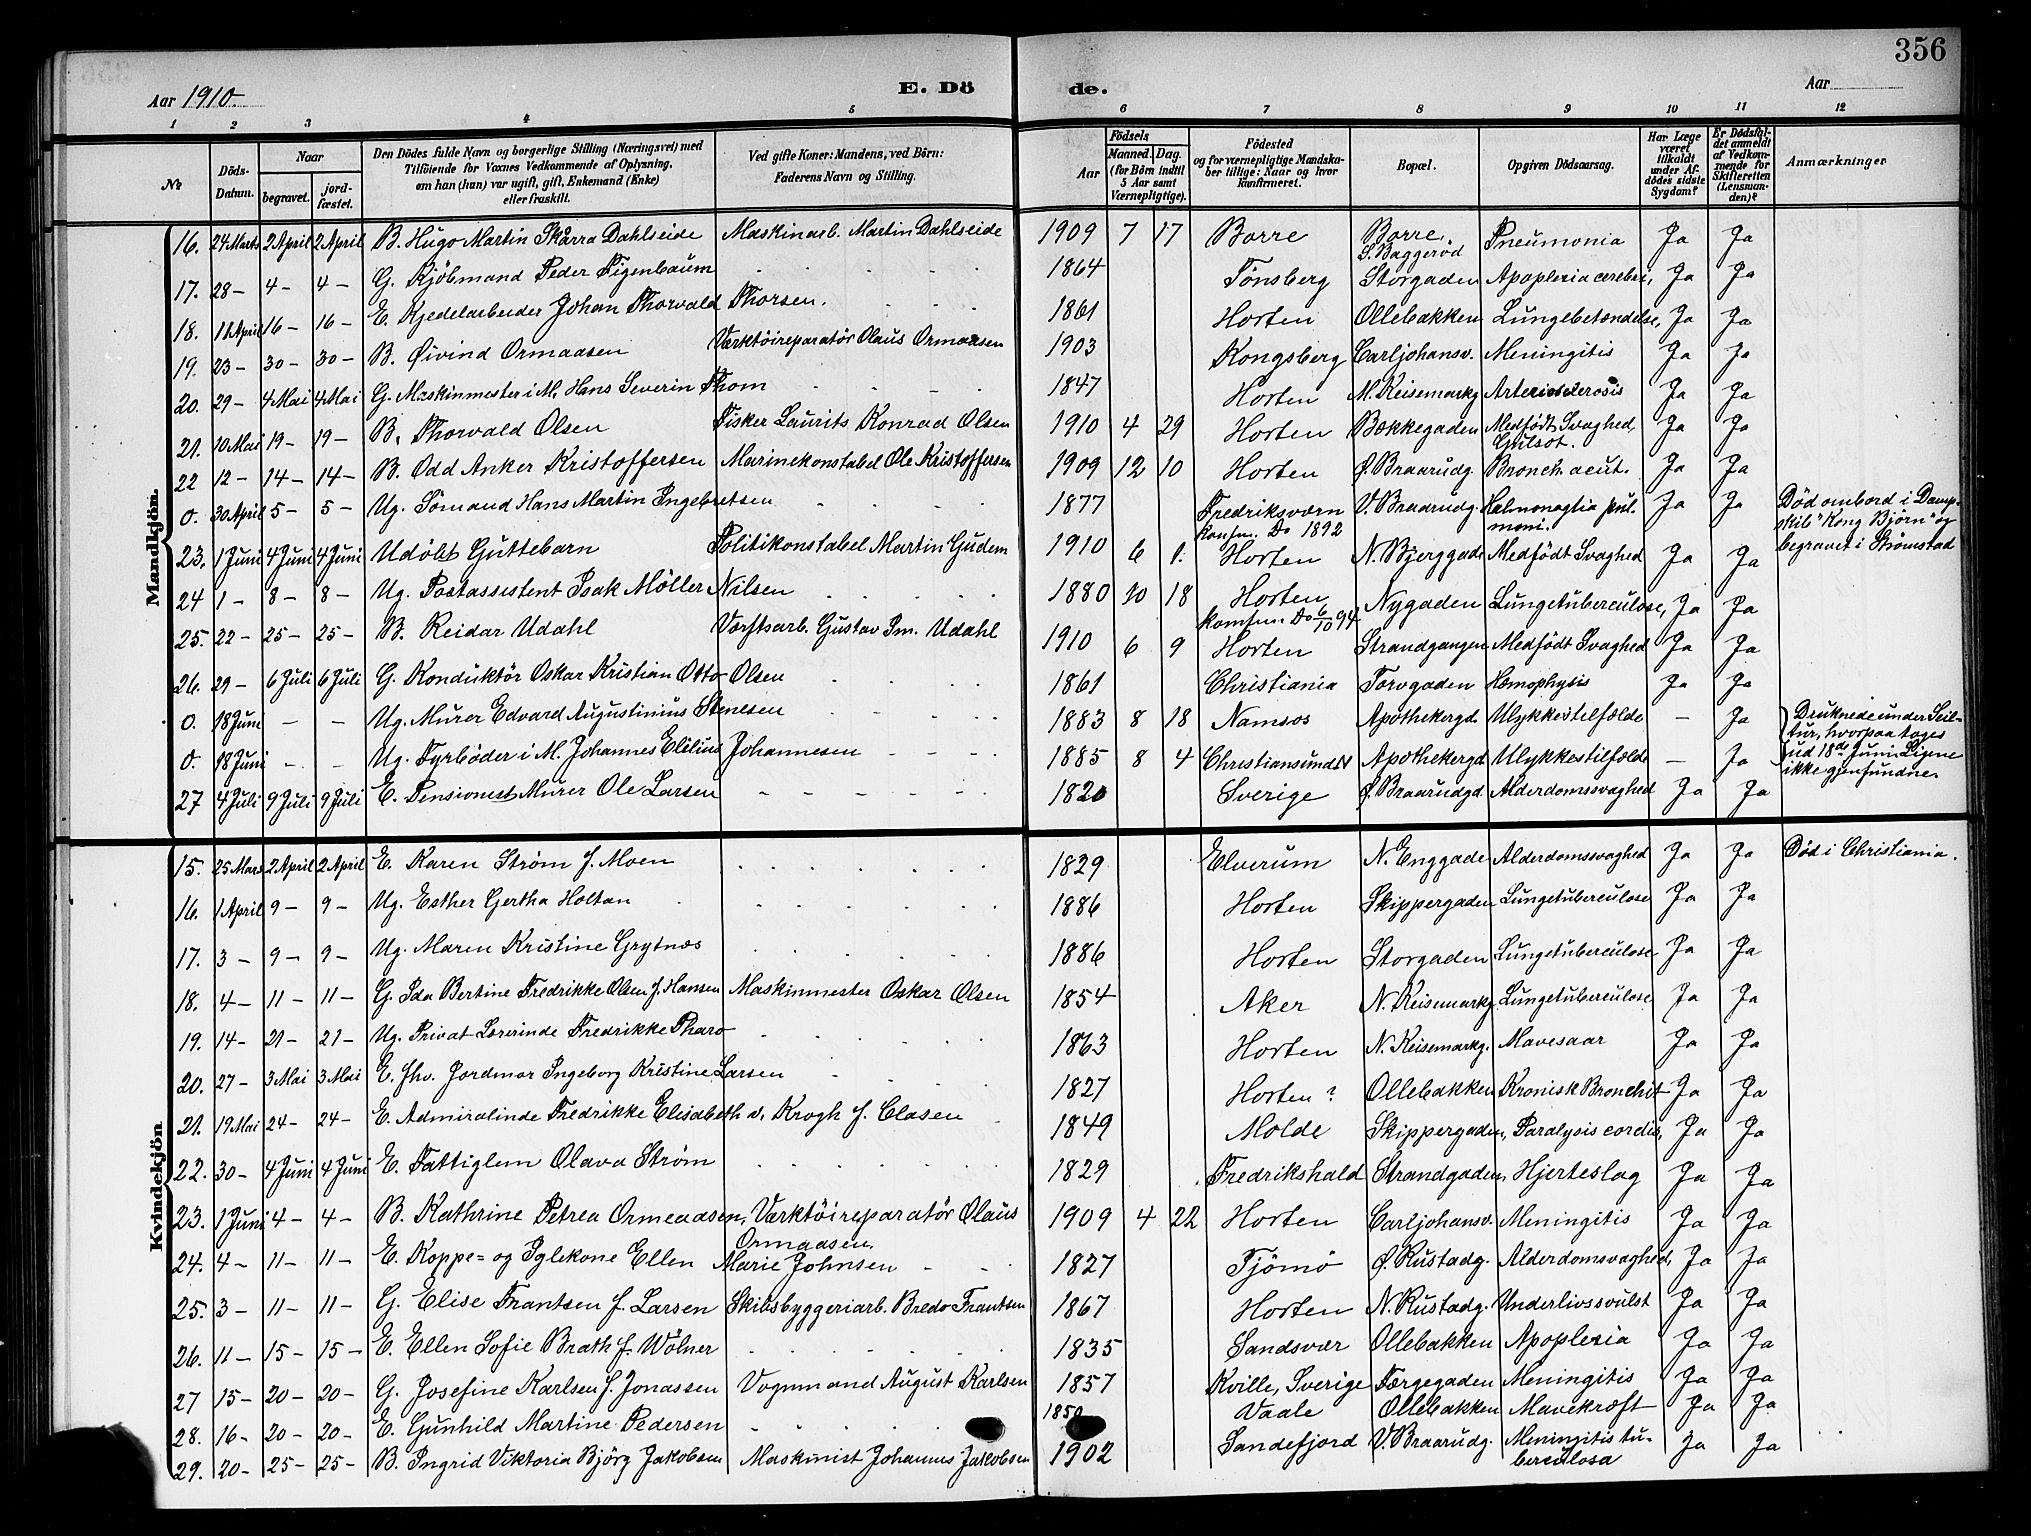 356
Aar 1910.
E. Dö
de.
Aar
1 2 3 4 5 6 7 8 9 10 11 12
№
Döds-Datum.
Naar
begravet.
jord-fæstet.
Den Dödes fulde Navn og borgerlige Stilling (Næringsvei) med
Tilföiende for Voxnes Vedkommende af Oplysning,
om han (hun) var ugift, gift, Enkemand (Enke)
eller fraskilt.
Ved gifte Koner: Mandens, ved Börn:
Faderens Navn og Stilling.
Födsels
Aar
Maaned. Dag.
(for Börn indtil 5 Aar samt Værnepligtige).
Födested
og for værnepligtige Mandska-
ber tillige: Naar og hvor
konfirmeret.
Bopæl.
Opgiven Dödsaarsag.
Har Læge været tilkaldt under Af-dödes sidste Sygdom?
Er Dödsfal-det anmeldt af Vedkom-mende for Skifteretten (Lensman-den)?
Anmærkninger
Mandkjön.
16. 24 Marts 2 April 2 April B. Hugo Martin Skårra Dahlseide Maskinarb. Martin Dahlseide 1909 7 17 Borre Borre, S. Baggeröd Pneumonia Ja Ja
17. 28 – 4 – 4 – G. Kjöbmand Peder Figenbaum 1864 Tønsberg Storgaden Apoplexia cerebri, Ja Ja
18. 11 April 16 – 16 – E. Kjedelarbeider Johan Thorvald Thorsen. 1861 Horten Ollebakken Lungebetændelse, Ja Ja
19. 23 – 30 – 30 – B. Øivind Ormaasen Værktöireparatör Olaus Ormaasen 1903 Kongsberg Carljohansv. Meningitis Ja Ja
20. 29 – 4 Mai 4 Mai G. Maskinmester i M. Hans Severin Thom 1847 Horten N. Keisemarkg Arteriosclerosis Ja Ja
21. 10 Mai 19 – 19 – B. Thorvald Olsen Fisker Laurits Konrad Olsen 1910 4 29 Horten Bækkegaden Medfödt Svaghed, Gulsot. Ja Ja
22 12 – 14 – 14 – B. Odd Anker Kristoffersen Marinekonstabel Ole Kristoffersen 1909 12 10 Horten Ø. Braarudg. Bronch. acut. Ja Ja
0. 30 April 5 – 5 – Ug. Sömand Hans Martin Ingebretsen 1877 Fredriksværn konfm. Do 1892 V. Braarudg. pulmoni. Ja Ja Död ombord i Damp-
skib "Kong Björn" og
begravet i Strömstad
23. 1 Juni 4 Juni 4 Juni Udöbt Guttebarn Politikonstabel Martin Gudem 1910 6 1. Horten N. Bjerggade Medfödt Svaghed Ja Ja
24 1 – 8 – 8 – Ug. Postassistent Isak Möller Nilsen 1880 10 18 Horten konfm. Do 6/10 94 Nygaden Lungetuberculose, Ja Ja
25. 22 – 25 – 25 – B. Reidar Udahl Værftsarb. Gustav Im. Udahl 1910 6 9 Horten Strandgangen Medfödt Svaghed Ja Ja
26. 29 – 6 Juli 6 Juli G. Konduktör Oskar Kristian Otto Olsen 1861 Christiania Torvgaden Hæmophysis Ja Ja
0. 18 Juni – – Ug. Murer Edvard Augustinius Stenesen 1883 8 18 Namsos Apothekergd. Ulykkestilfælde – Ja Druknede under Seil-
tur, hvorpaa toges
ud 18de Juni. Ligene
ikke gjenfundne.
0. 18 Juni – – Ug. Fyrböder i M. Johannes Elilius Johannesen 1885 8 4 Christiansund N Apothekergd Ulykkestilfælde – Ja
27 4 Juli 9 Juli 9 Juli E. Pensionist Murer Ole Larsen 1820 Sverige Ø. Braarudgd Alderdomssvaghed Ja Ja
Kvindekjön
15. 25 Mars 2 April 2 April E. Karen Ström f. Moen 1829 Elverum N. Enggade Alderdomssvaghed Ja Ja Död i Christiania.
16. 1 April 9 – 9 – Ug. Esther Gertha Holtan 1886 Horten Skippergaden Lungetuberculose Ja Ja
17. 3 – 9 – 9 – Ug. Maren Kristine Grytnæs 1886 Horten Storgaden Lungetuberculose Ja Ja
18. 4 – 11 – 11 – G. Ida Bertine Fredrikke Olsen f. Hansen Maskinmester Oskar Olsen 1854 Aker N. Keisemarkg Lungetuberculose Ja Ja
19. 14 – 21 – 21 – Ug. Privat Lærerinde Fredrikke Tharo 1863 Horten N. Keisemarkg. Mavesaar Ja Ja
20. 27 – 3 Mai 3 Mai E. fhv. Jordmor Ingeborg Kristine Larsen 1827 Horten ? Ollebakken Kronisk Bronchit Ja Ja
21. 19 Mai 24 – 24 – E. Admiralinde Fredrikke Elisabeth v. Krogh f. Clasen 1849 Molde Skippergaden, Paralysis cordis, Ja Ja
22. 30 – 4 Juni 4 Juni E. Fattiglem Olava Ström 1829 Fredrikshald Strandgaden, Hjerteslag Ja Ja
23. 1 Juni 4 – 4 – B. Kathrine Petrea Ormaadsen, Værktöireparatör Olaus Ormaasen. 1909 4 22 Horten Carljohansv. Meningitis Ja Ja
24. 4 – 11 – 11 – E. Koppe= og Iglekone Ellen Marie Johnsen 1827 Tjömö Ø. Rustadg. Alderdomsvaghed, Ja Ja
25. 3 – 11 – 11 – G. Elise Frantsen f. Larsen Skibsbyggeriarb. Bredo Frantsen 1867 Horten N. Rustadg. Underlivssvulst Ja Ja
26. 11 – 15 – 15 – E. Ellen Sofie Brath f. Wölner 1835 Sandsvær Ollebakken Apoplexia Ja Ja
27 15 – 20 – 20 – G. Josefine Karlsen f. Jonassen Vognmand August Karlsen 1857 Kville, Sverige Færgegaden Meningitis Ja Ja
28. 16 – 20 – 20 – E. Gunhild Martine Pedersen 1850 Vaale Ollebakken Mavekræft Ja Ja
29. 20 – 25 – 25 – B. Ingrid Viktoria Björg Jakobsen Maskinist Johannes Jakobsen 1902 Sandefjord V. Braarudg. Meningitis tu-
berculosa Ja Ja